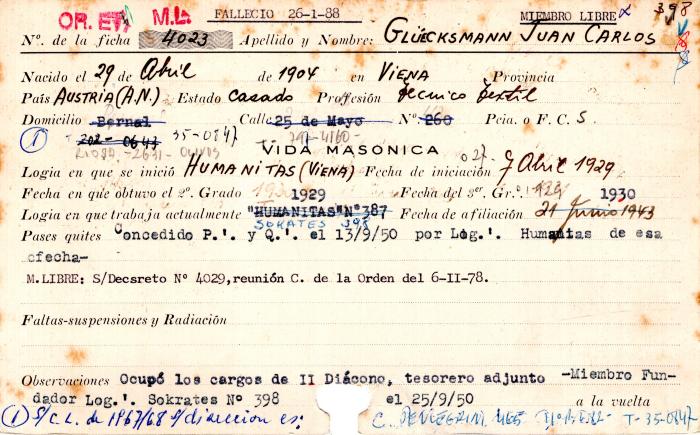 OR. ET. M.L. FALLECIO 26-1-88 MIEMBRO LIBRE 398
Nº. de la ficha 4023 Apellido y Nombre: GLÜCKSMANN JUAN CARLOS
Nacido el 29 de Abril de 1904 en VIENA Provincia
País AUSTRIA (A.N.) Estado Casado Profesión técnico textil
Domicilio Bernal Calle 25 de Mayo Nº 260 Pcia. o F. C. S.
① 202-0647 35-0847
VIDA MASONICA
Logia en que se inició HUMANITAS (VIENA) Fecha de iniciación 7 Abril 1929
Fecha en que obtuvo el 2º. Grado 1929 Fecha del 3er. Gr. 1930
Logia en que trabaja actualmente "HUMANITAS" Nº 387 Fecha de afiliación 21 Junio 1943
SOKRATES 398
Pases quites Concedido P.'. y Q.'. el 13/9/50 por Log.'. Humanitas de esa
cfecha-
M.LIBRE: S/Decsreto Nº 4029,reunión C. de la Orden del 6-II-78.
Faltas-suspensiones y Radiación
Observaciones Ocupó los cargos de II Diácono, tesorero adjunto -Miembro Fun-
dador Log.'. Sokrates Nº 398 el 25/9/50 a la vuelta
① S/C.L. de 1967/68 s/direccion es: C. PELLEGRINI 465 T-35-0847